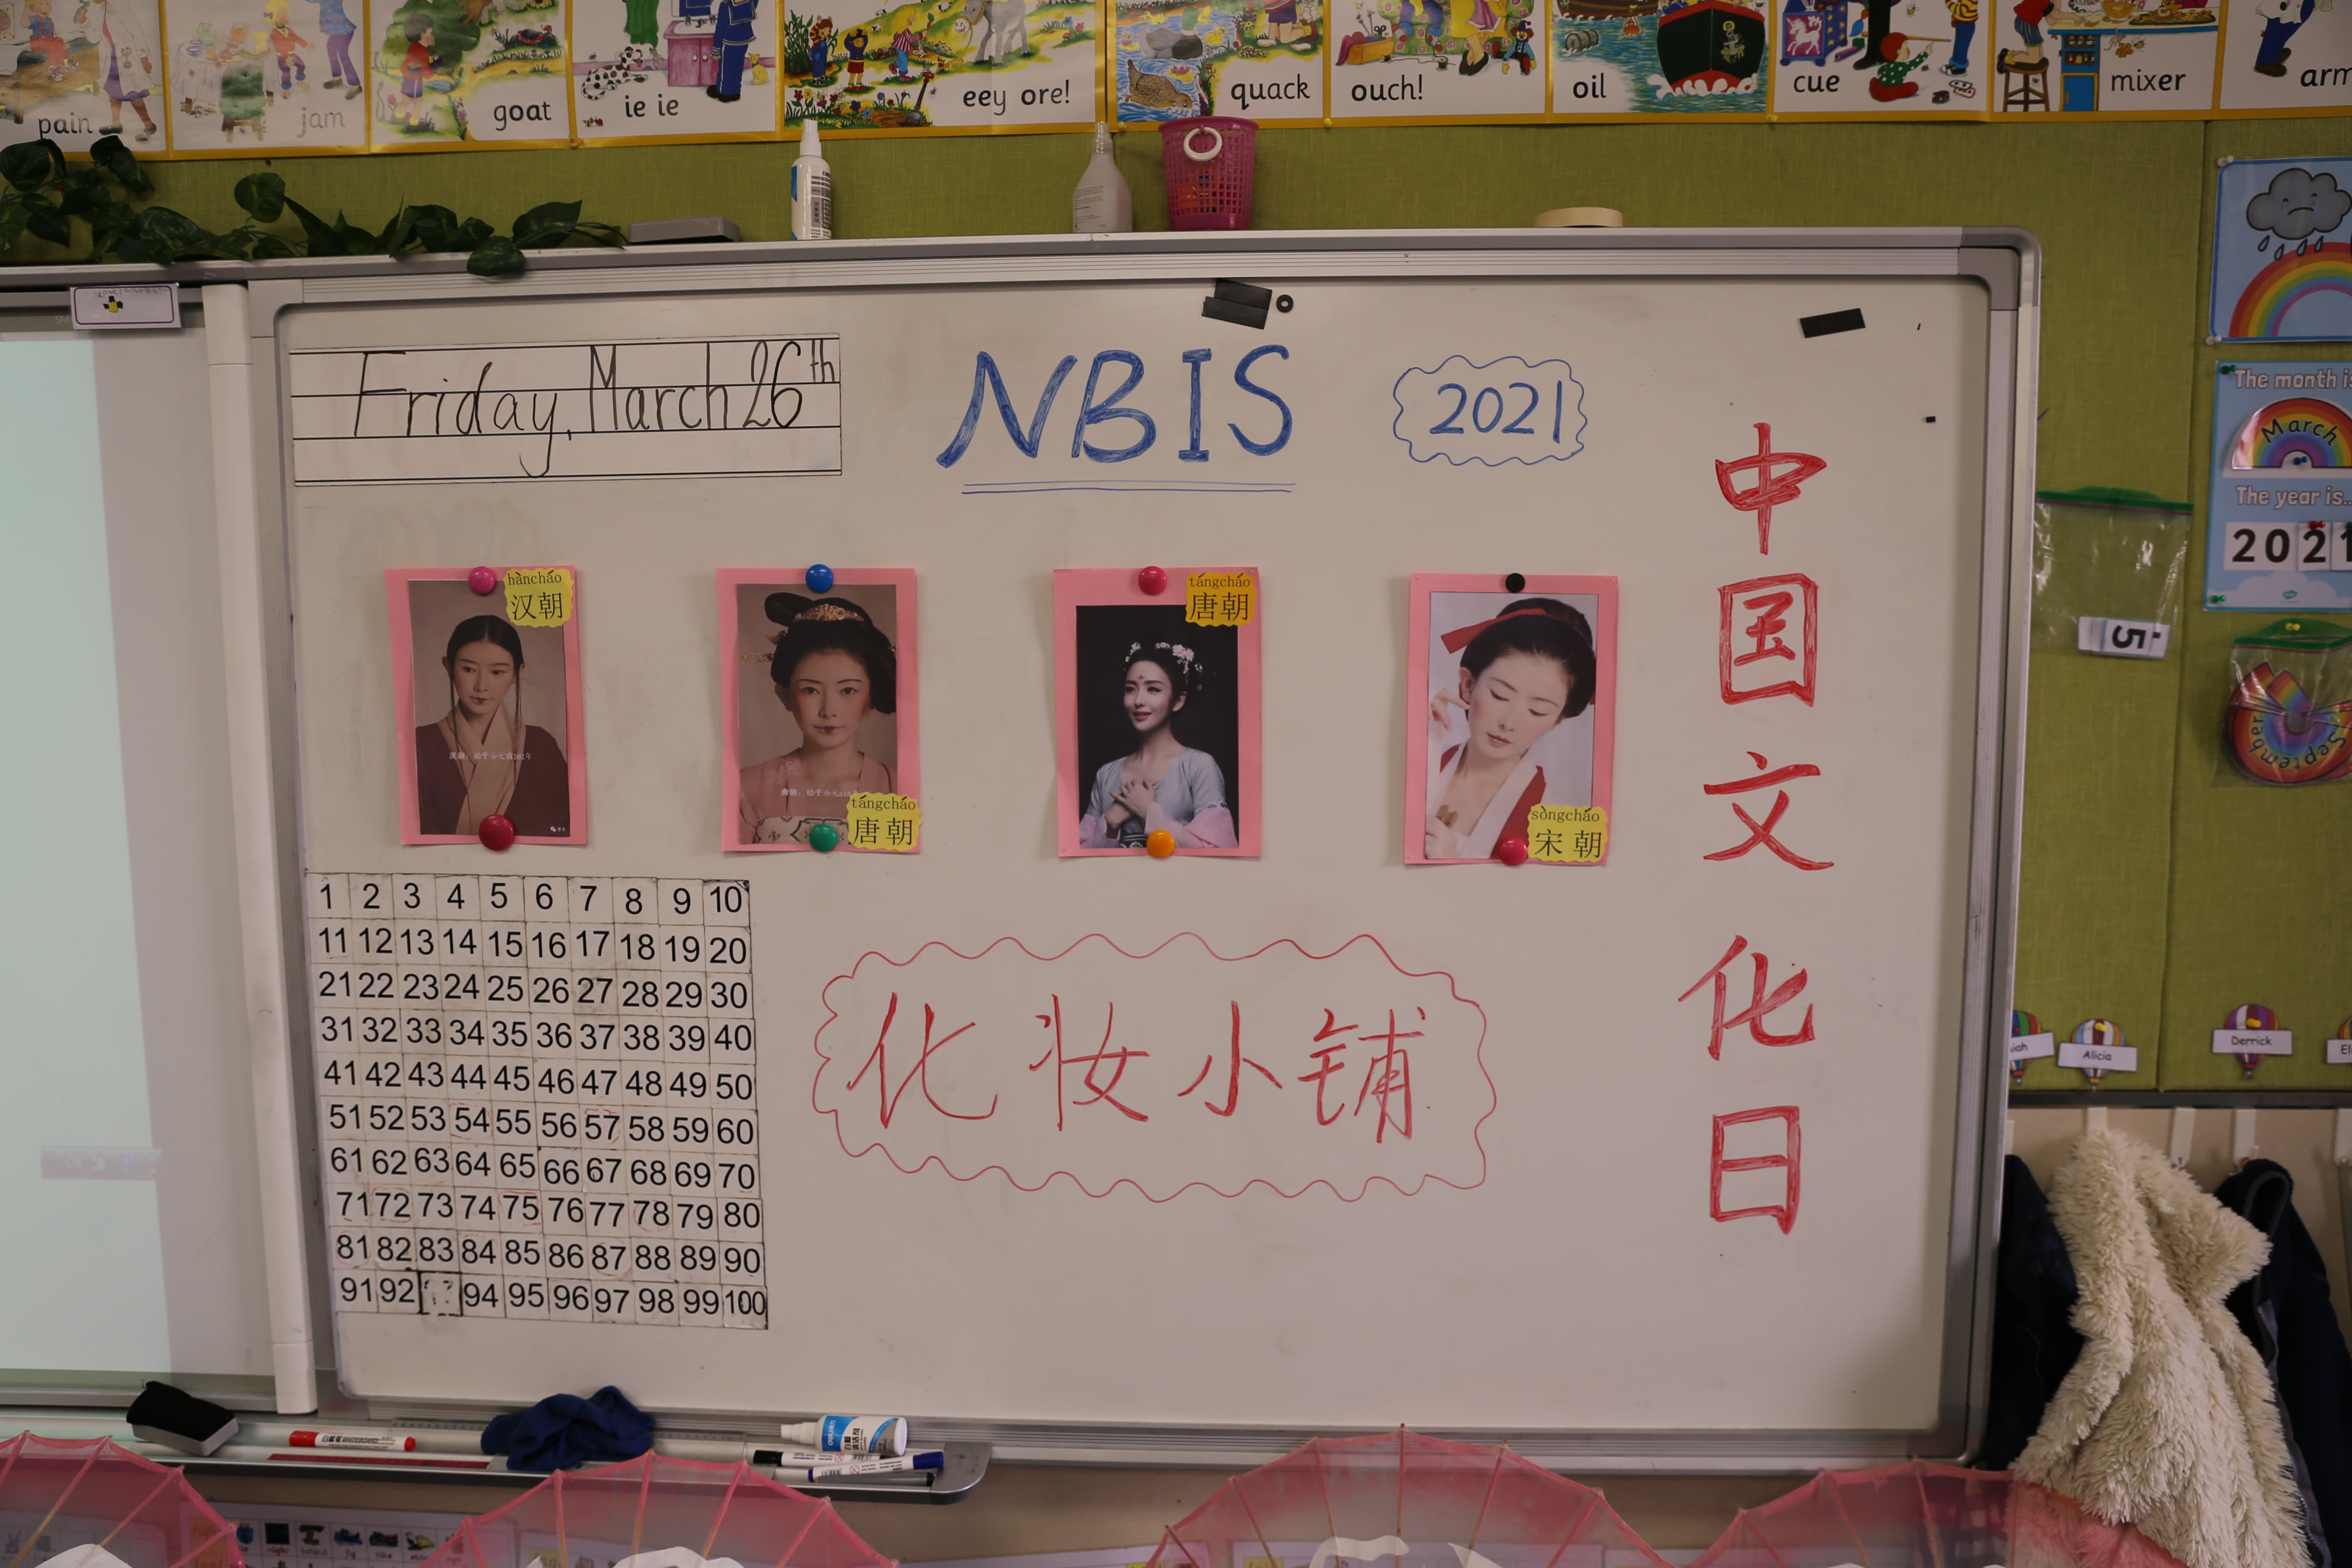 pain
jam
goat
ie ie
eey ore!
quack
ouch!
oil
cue
mixer
arm
Friday, March 26th
NBIS
2021
中国文化日
The month is
March
The year is...
2021
5
September
hàncháo
汉朝
tángcháo
唐朝
tángcháo
唐朝
sòngcháo
宋朝
1 2 3 4 5 6 7 8 9 10
11 12 13 14 15 16 17 18 19 20
21 22 23 24 25 26 27 28 29 30
31 32 33 34 35 36 37 38 39 40
41 42 43 44 45 46 47 48 49 50
51 52 53 54 55 56 57 58 59 60
61 62 63 64 65 66 67 68 69 70
71 72 73 74 75 76 77 78 79 80
81 82 83 84 85 86 87 88 89 90
91 92 94 95 96 97 98 99 100
化妆小铺
Alicia
Derrick